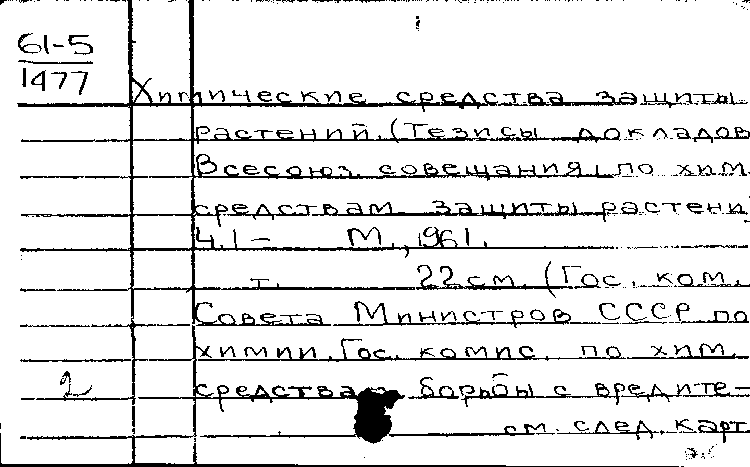 61-5
1477
Химические средства защиты
растений. (Тезисы докладов
Всесоюз. совещания по хим.
средствам защиты растени
Ч. 1 – М., 1961.
т. 22 см. (Гос. ком.
Совета Министров СССР по
химии. Гос. комис. по хим.
2 средствам борьбы с вредите-
см. след. карт